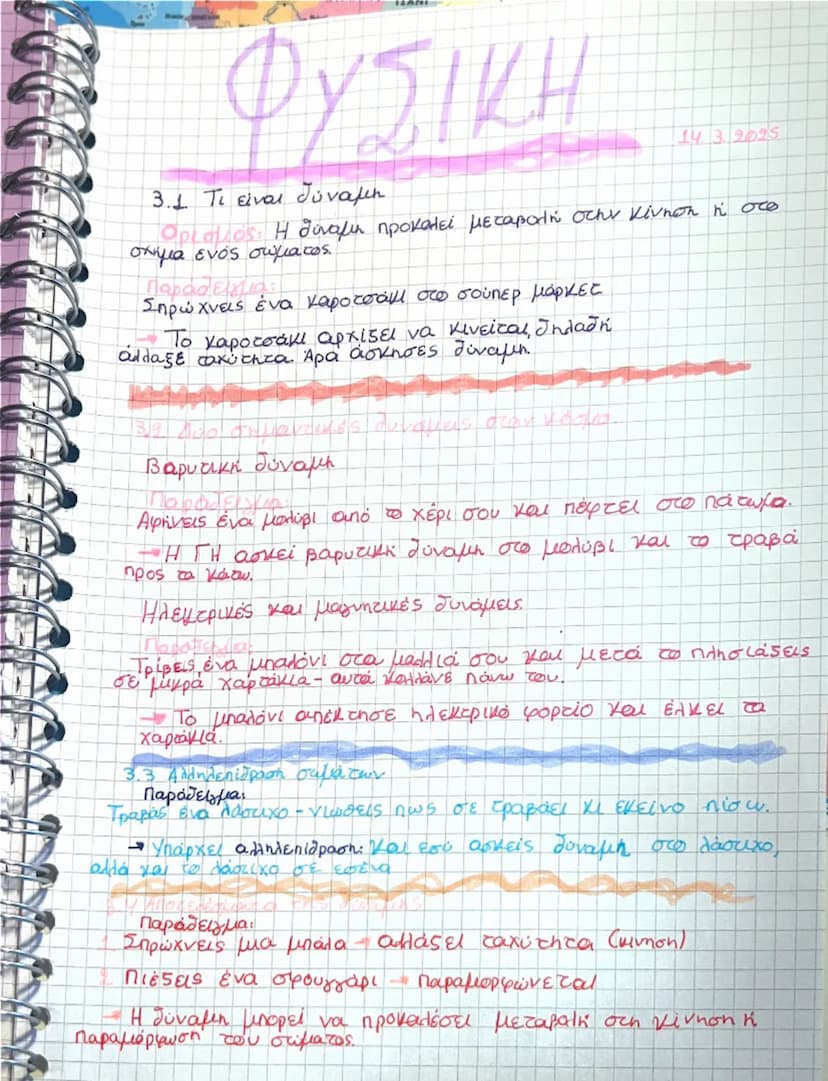 ΦΥΣΙΚΗ
14.3.2025
3.1 Τι είναι δύναμη
Ορισμός: Η δύναμη προκαλεί μεταβολή στην κίνηση ή στο
σχήμα ενός σώματος.
Παράδειγμα:
Σπρώχνεις ένα καροτσάκι στο σούπερ μάρκετ
→ Το καροτσάκι αρχίζει να κινείται, δηλαδή
άλλαξε ταχύτητα. Άρα άσκησες δύναμη.
3.2 Δύο σημαντικές δυνάμεις στον κόσμο.
Βαρυτική δύναμη
Παράδειγμα:
Αφήνεις ένα μολύβι από το χέρι σου και πέφτει στο πάτωμα.
→ Η Γη ασκεί βαρυτική δύναμη στο μολύβι και το τραβά
προς τα κάτω.
Ηλεκτρικές και μαγνητικές δυνάμεις.
Παράδειγμα:
Τρίβεις ένα μπαλόνι στα μαλλιά σου και μετά το πλησιάζεις
σε μικρά χαρτάκια - αυτά κολλάνε πάνω του.
→ Το μπαλόνι απέκτησε ηλεκτρικό φορτίο και έλκει τα
χαρτάκια.
3.3 Αλληλεπίδραση σωμάτων
Παράδειγμα:
Τραβάς ένα λάστιχο - νιώθεις πως σε τραβάει κι εκείνο πίσω.
→ Υπάρχει αλληλεπίδραση: Και εσύ ασκείς δύναμη στο λάστιχο,
αλλά και το λάστιχο σε εσένα
3.4 Αποτελέσματα της δύναμης
Παράδειγμα:
1. Σπρώχνεις μια μπάλα → αλλάζει ταχύτητα (κίνηση)
2. Πιέζεις ένα σφουγγάρι → παραμορφώνεται
→ Η δύναμη μπορεί να προκαλέσει μεταβολή στη κίνηση ή
παραμόρφωση του σώματος.